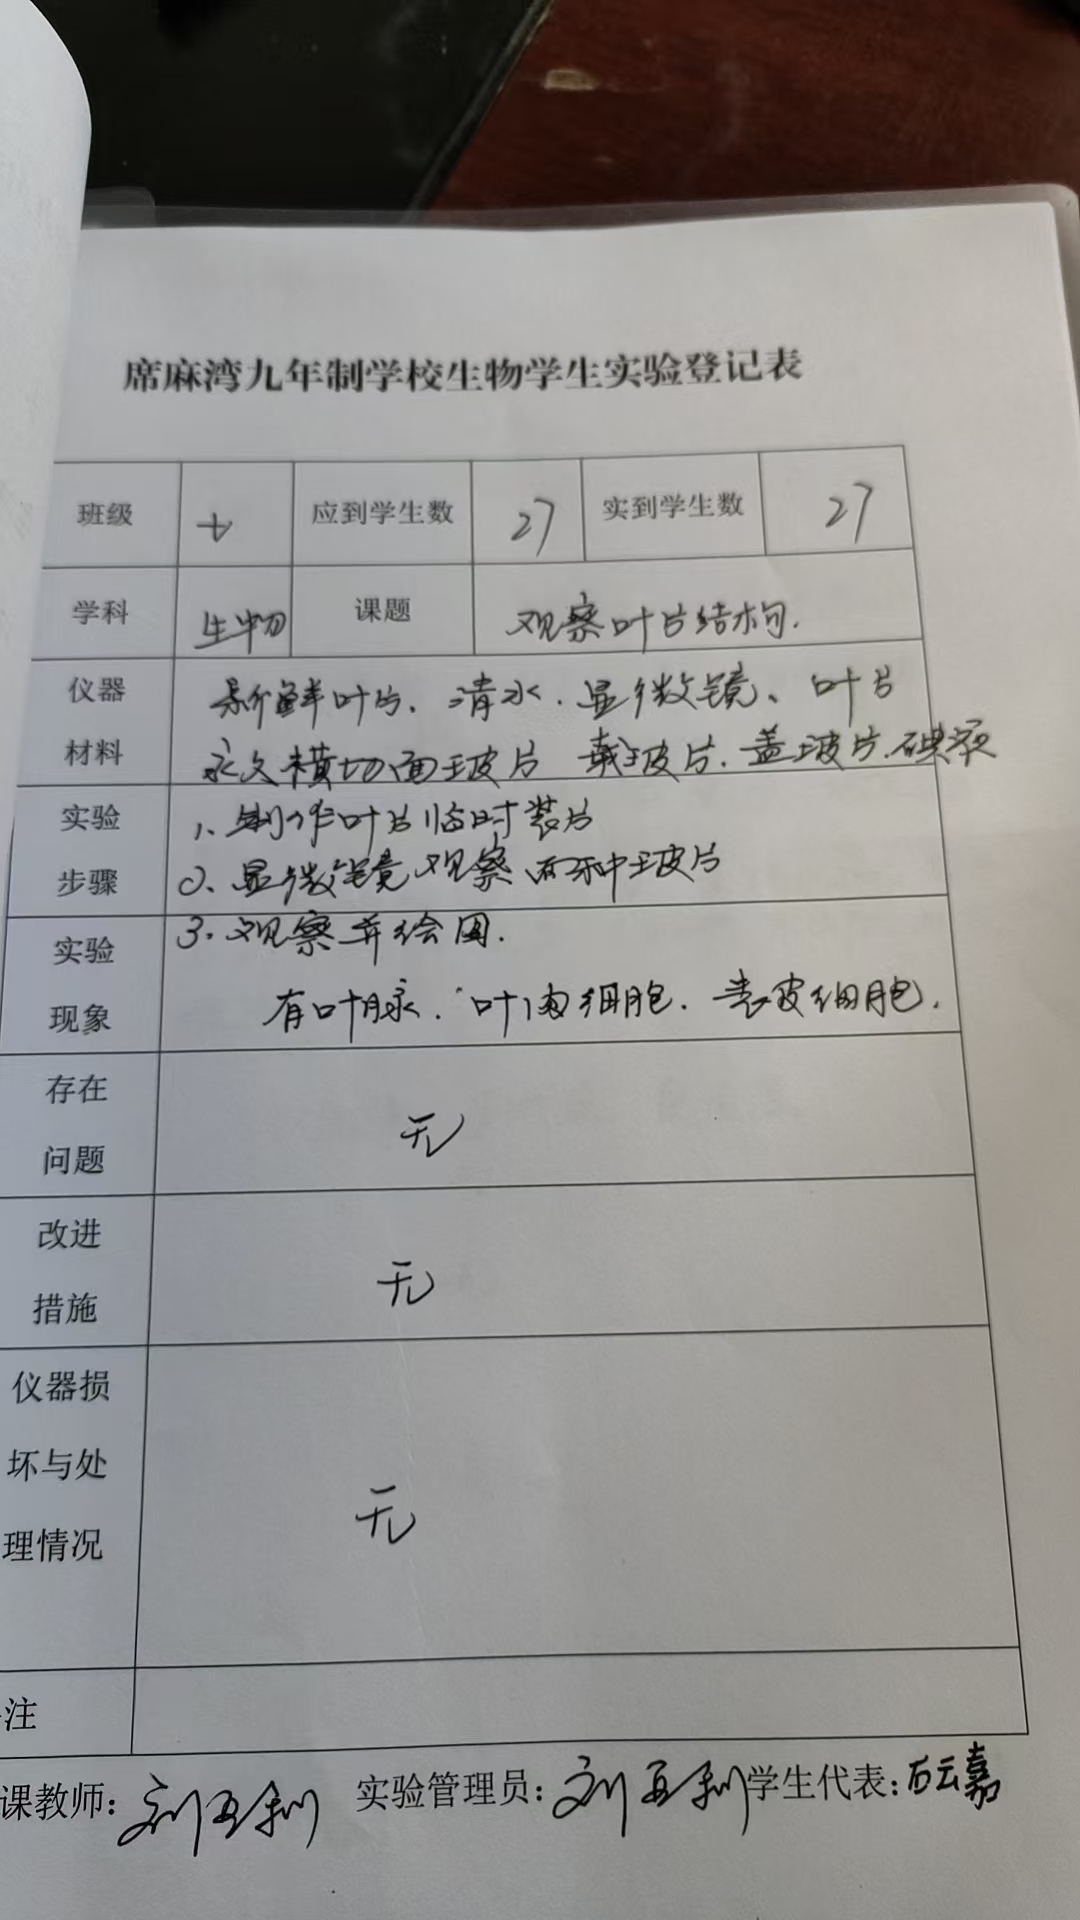 席麻湾九年制学校生物学生实验登记表
班级 七 应到学生数 27 实到学生数 27
学科 生物 课题 观察叶片结构.
仪器 新鲜叶片、清水、显微镜、叶片
材料 永久横切面玻片 载玻片、盖玻片、碘液
实验 1、制作叶片临时装片
步骤 2、显微镜观察两种玻片
实验 3、观察并绘图.
现象 有叶脉、叶肉细胞、表皮细胞.
存在
问题 无
改进
措施 无
仪器损
坏与处
理情况 无
注
课教师: 刘 实验管理员: 刘 学生代表: 云嘉